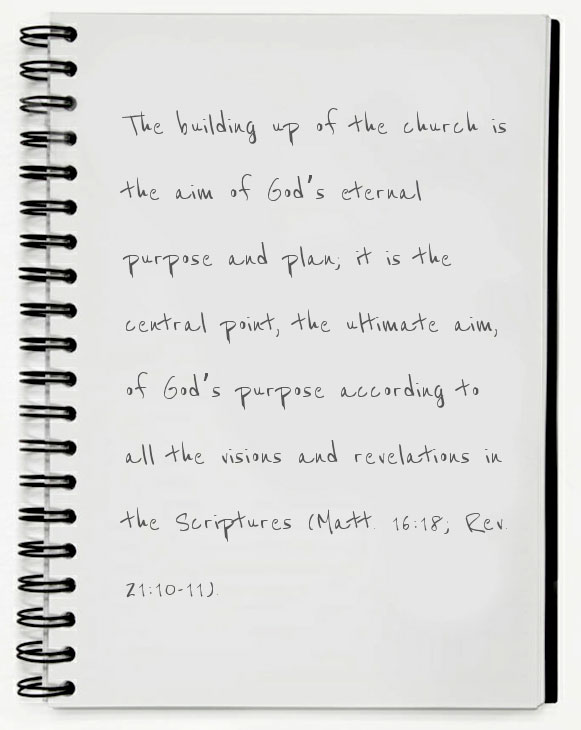 The building up of the church is
the aim of God's eternal
purpose and plan; it is the
central point, the ultimate aim,
of God's purpose according to
all the visions and revelations in
the Scriptures (Matt. 16:18; Rev.
21:10-11).